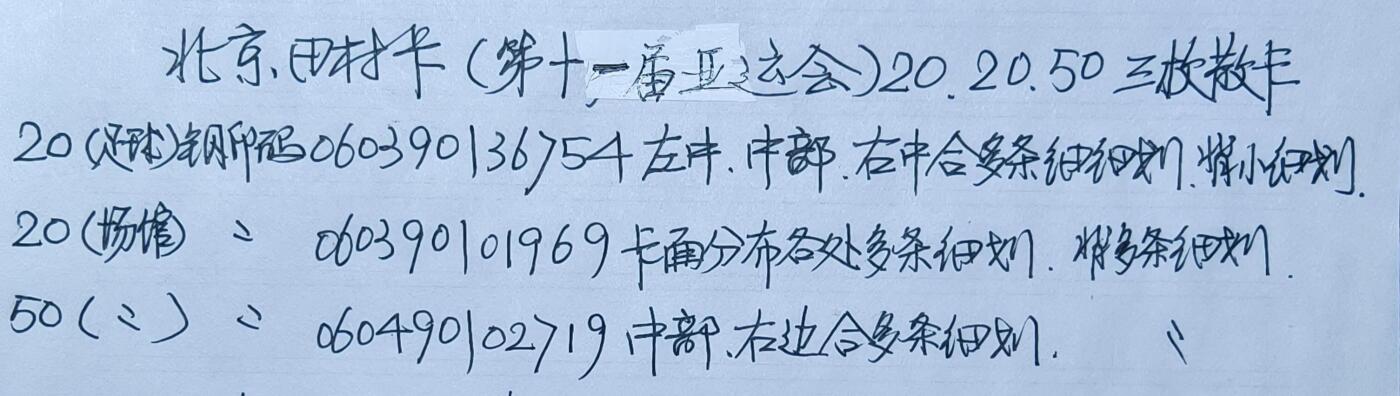 北京.田村卡(第十一届亚运会)20.20.50三枚散卡
20(足球)钢印码060390136754左中.中部.右中合多条细细划.背小细划.
20(场馆) 〃 060390101969卡面分布各处多条细划.背多条细划.
50(〃) 〃 060490102719中部.右边合多条细划. 〃